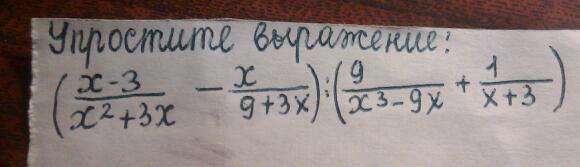 Упростите выражение:
(x-3/x²+3x - x/9+3x):(9/x³-9x + 1/x+3)